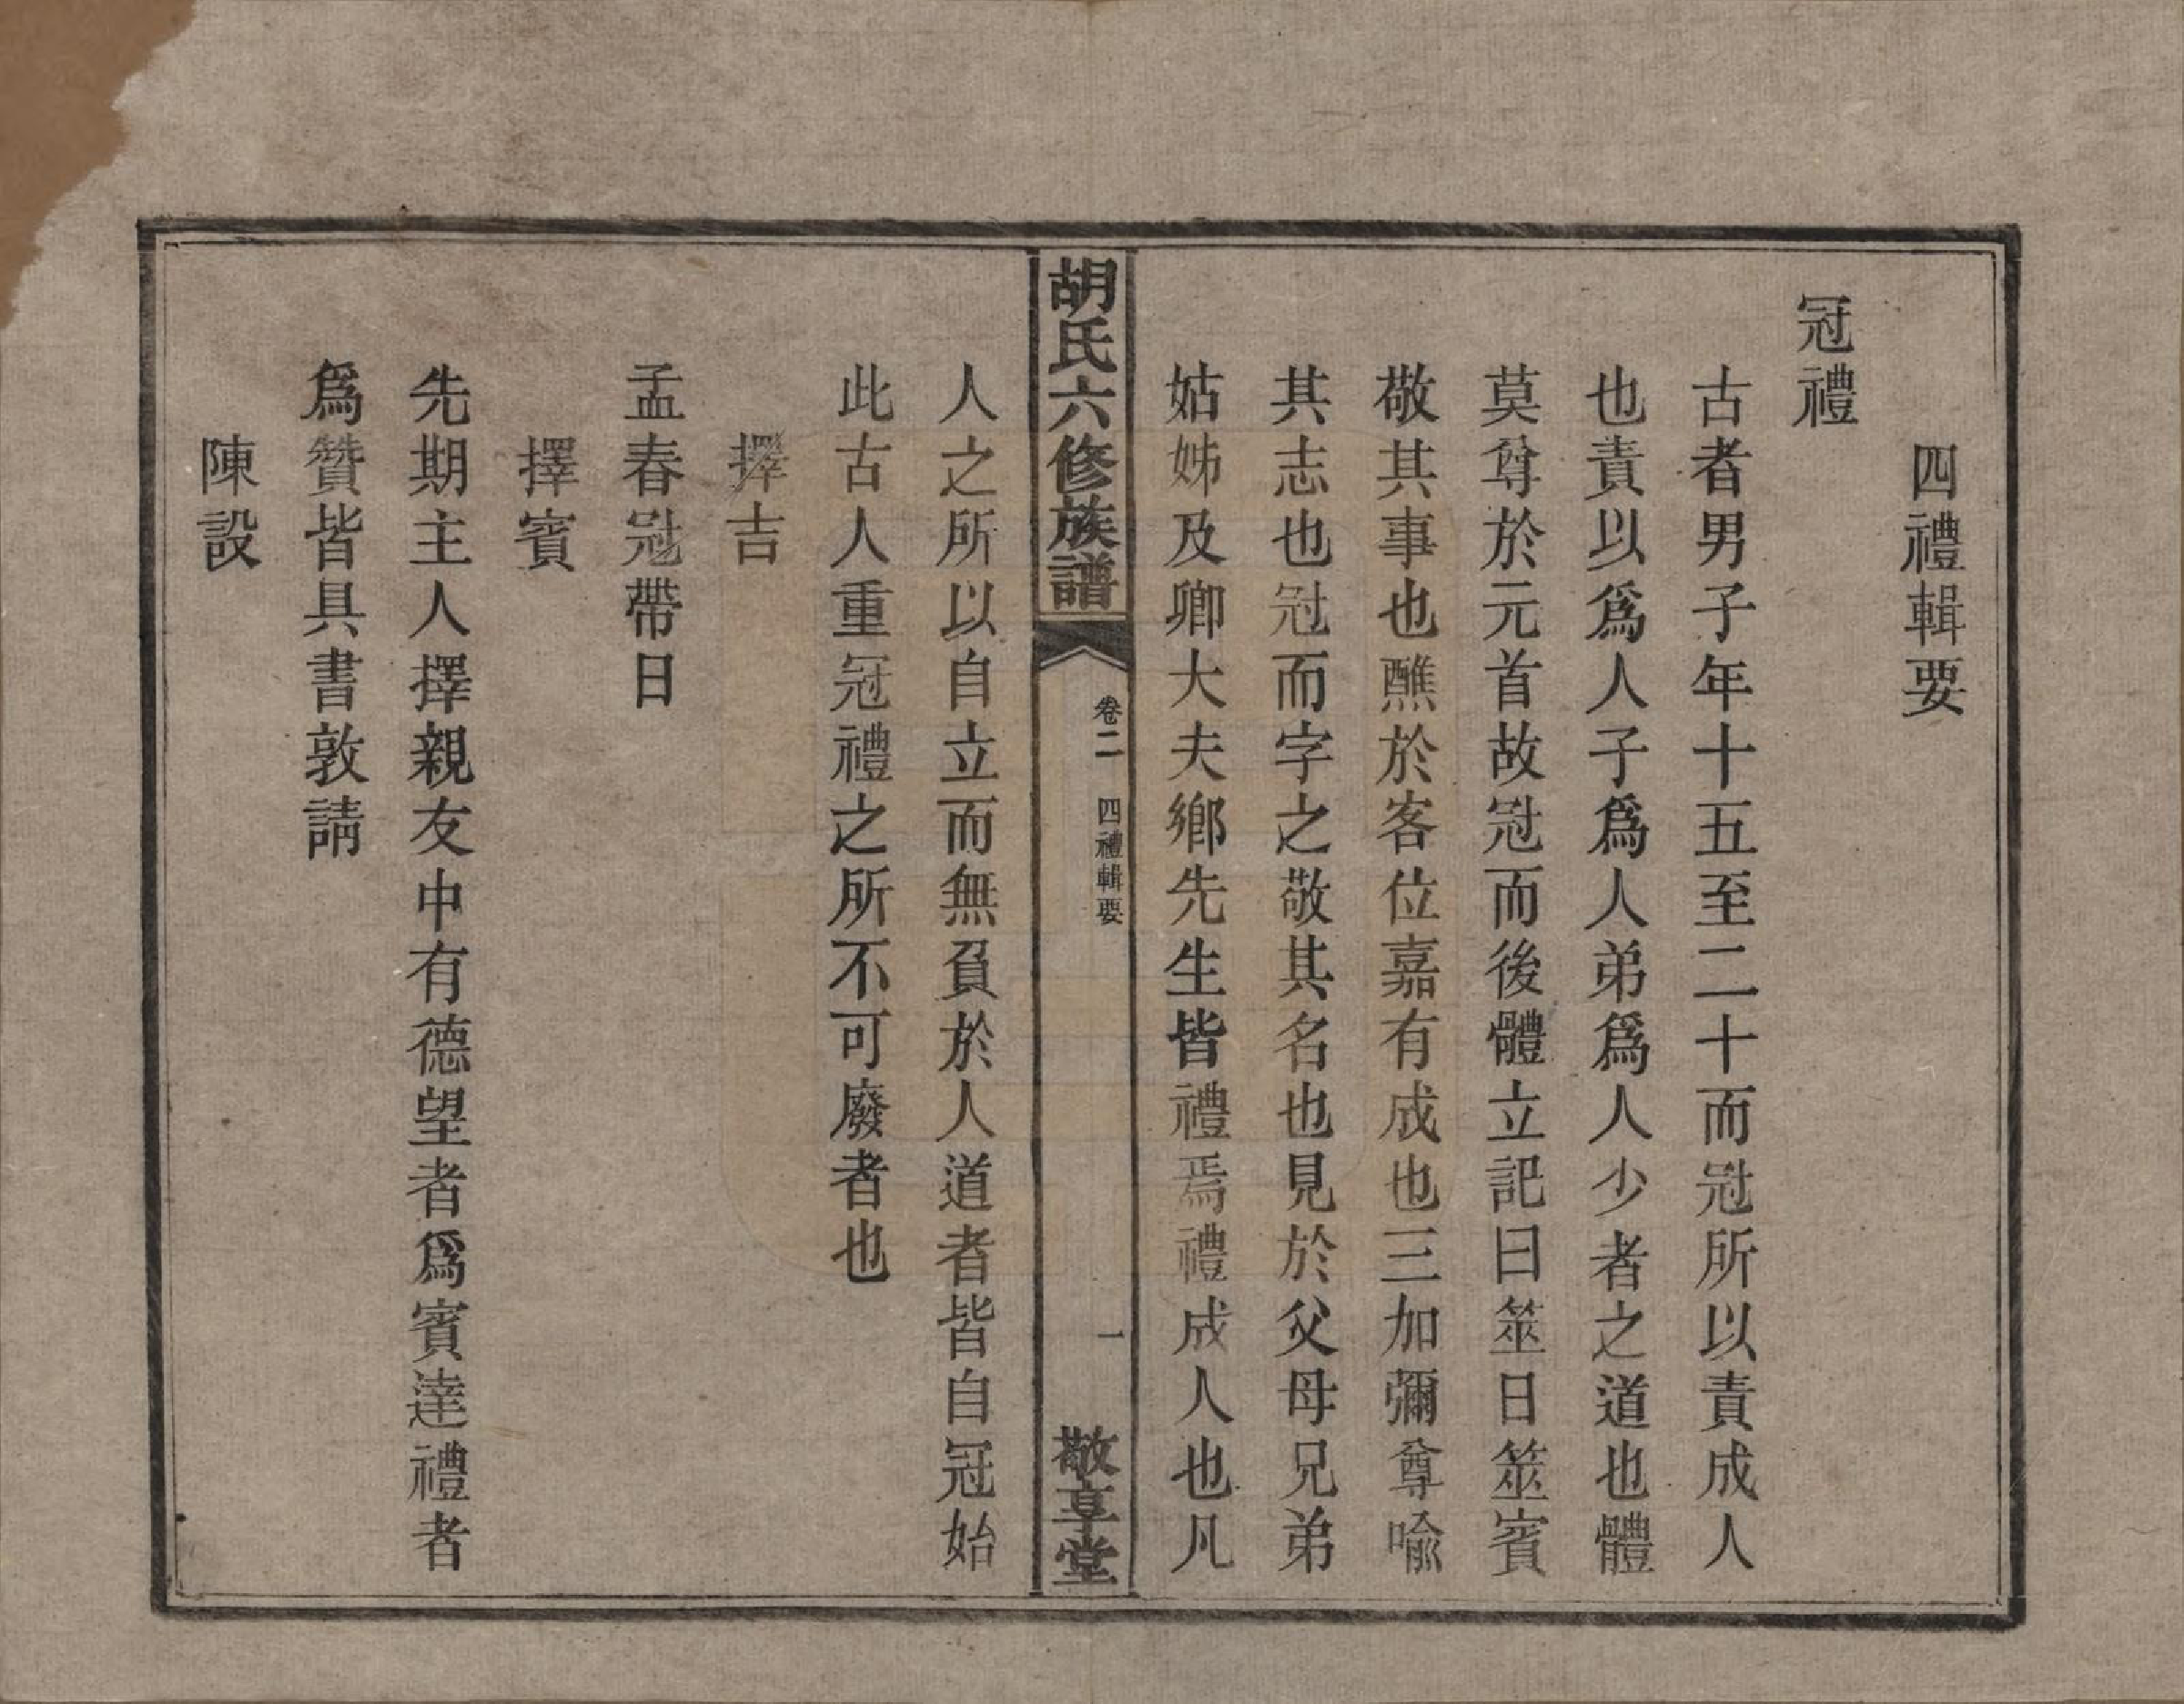 四禮輯要
冠禮
古者男子年十五至二十而冠所以責成人
也責以爲人子爲人弟爲人少者之道也體
莫尊於元首故冠而後體立記曰筮日筮賓
敬其事也醮於客位嘉有成也三加彌尊喩
其志也冠而字之敬其名也見於父母兄弟
姑姊及卿大夫鄉先生皆禮焉禮成人也凡
胡氏六修族譜
卷二 四禮輯要
一
敬享堂
人之所以自立而無負於人道者皆自冠始
此古人重冠禮之所不可廢者也
擇吉
孟春冠帶日
擇賓
先期主人擇親友中有德望者爲賓達禮者
爲贊皆具書敦請
陳設